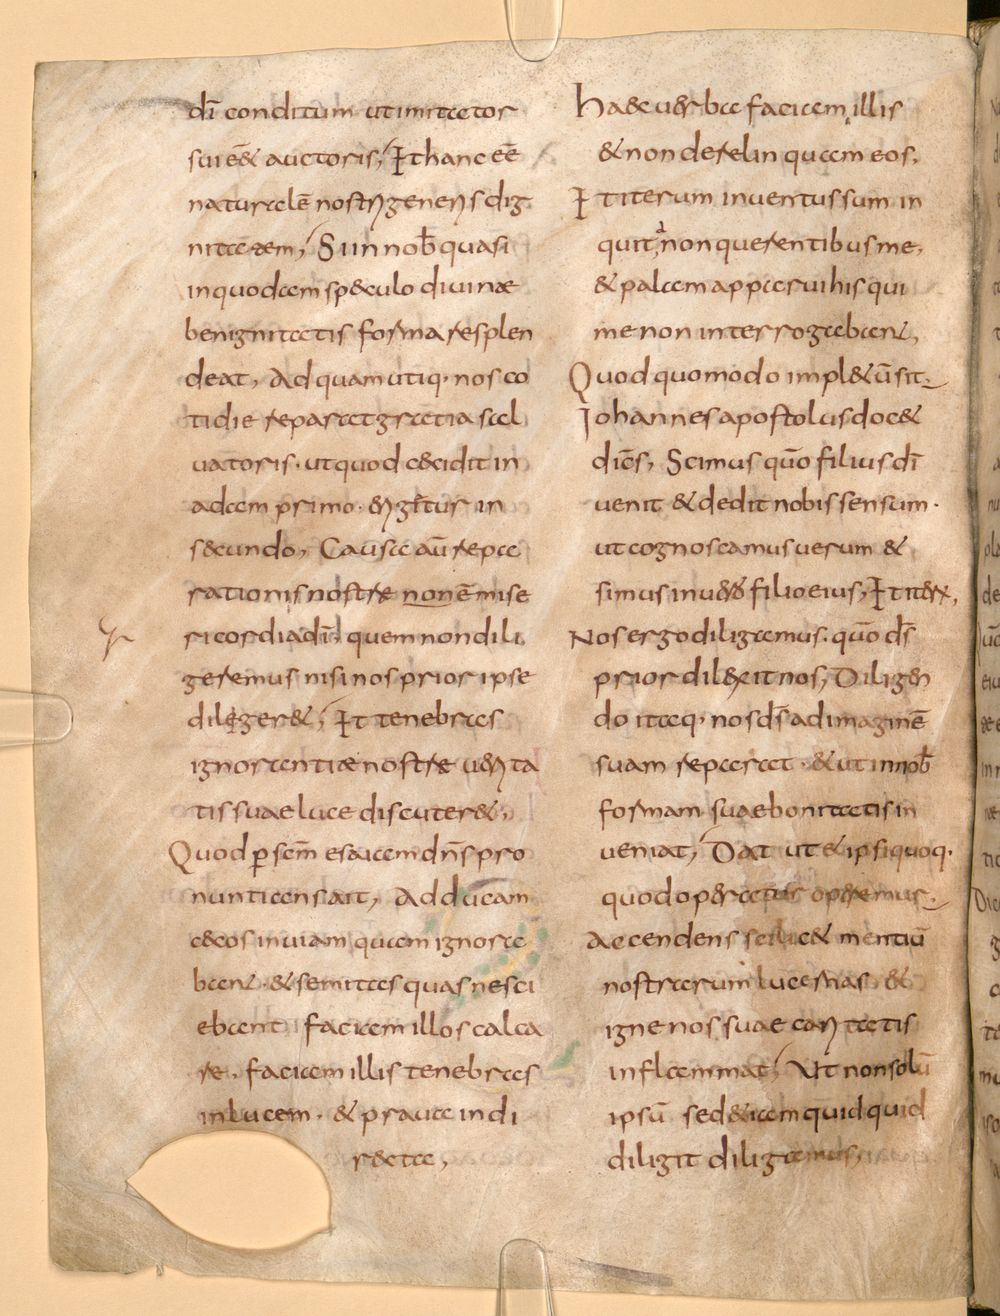 dī conditum ut imitator
sui eēt auctoris, Et hanc eē
naturalē nostri generis dig
nitatem, Si in nob̄ quasi
in quodam speculo divinæ
benignitatis forma resplen
deat, Ad quam utiq· nos co
tidie reparat gratia sal
uatoris· ut quod cecidit in
adam primo· erigatur in
secundo, Causa aū repa
rationis nostræ non ē mise
ricordia dī· quem non dili
geremus nisi nos prior ipse
diligeret, Et tenebras
ignorantiæ nostræ uerita
tis suae luce discuteret,
Quod p sc̄m esaiam dn̄s pro
nuntians ait, Adducam
cecos in uiam quam ignora
bant· & semitas quas nesci
ebant faciam illos calca
re, faciam illis tenebras
in lucem· & praua in di
recta,
Haec uerba faciam illis
& non derelinquam eos,
Et iterum inventus sum in
quit a non querentibus me,
& palam apparui his qui
me non interrogabant,
Quod quomodo impletū sit,
Johannes apostolus docet
dicēs, Scimus qūo filius dī
venit & dedit nobis sensum·
ut cognoscamus uerum &
simus in uero filio eius, Et iterū,
Nos ergo diligamus· qūo ds̄
prior dilexit nos, Diligen
do itaq· nos ds̄ ad imaginē
suam reparat· & ut in nob̄
formam suae bonitatis in
veniat, Dat ut & ipsi quoq·
quod operatur operemus,
Accendens scilicet mentiū
nostrarum lucernas· &
igne nos suae caritatis
inflammat, Ut non solū
ipsū sed etiam quidquid
diligit diligamus,